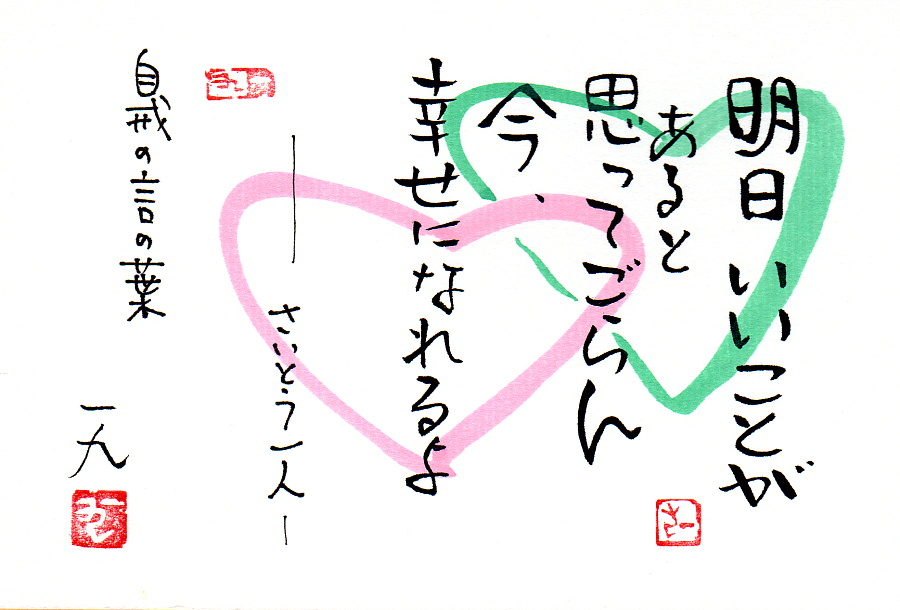 明日いいことが
あると
思ってごらん
今、
幸せになれるよ
── さいとう一人 ─
自戒の言の葉
一九